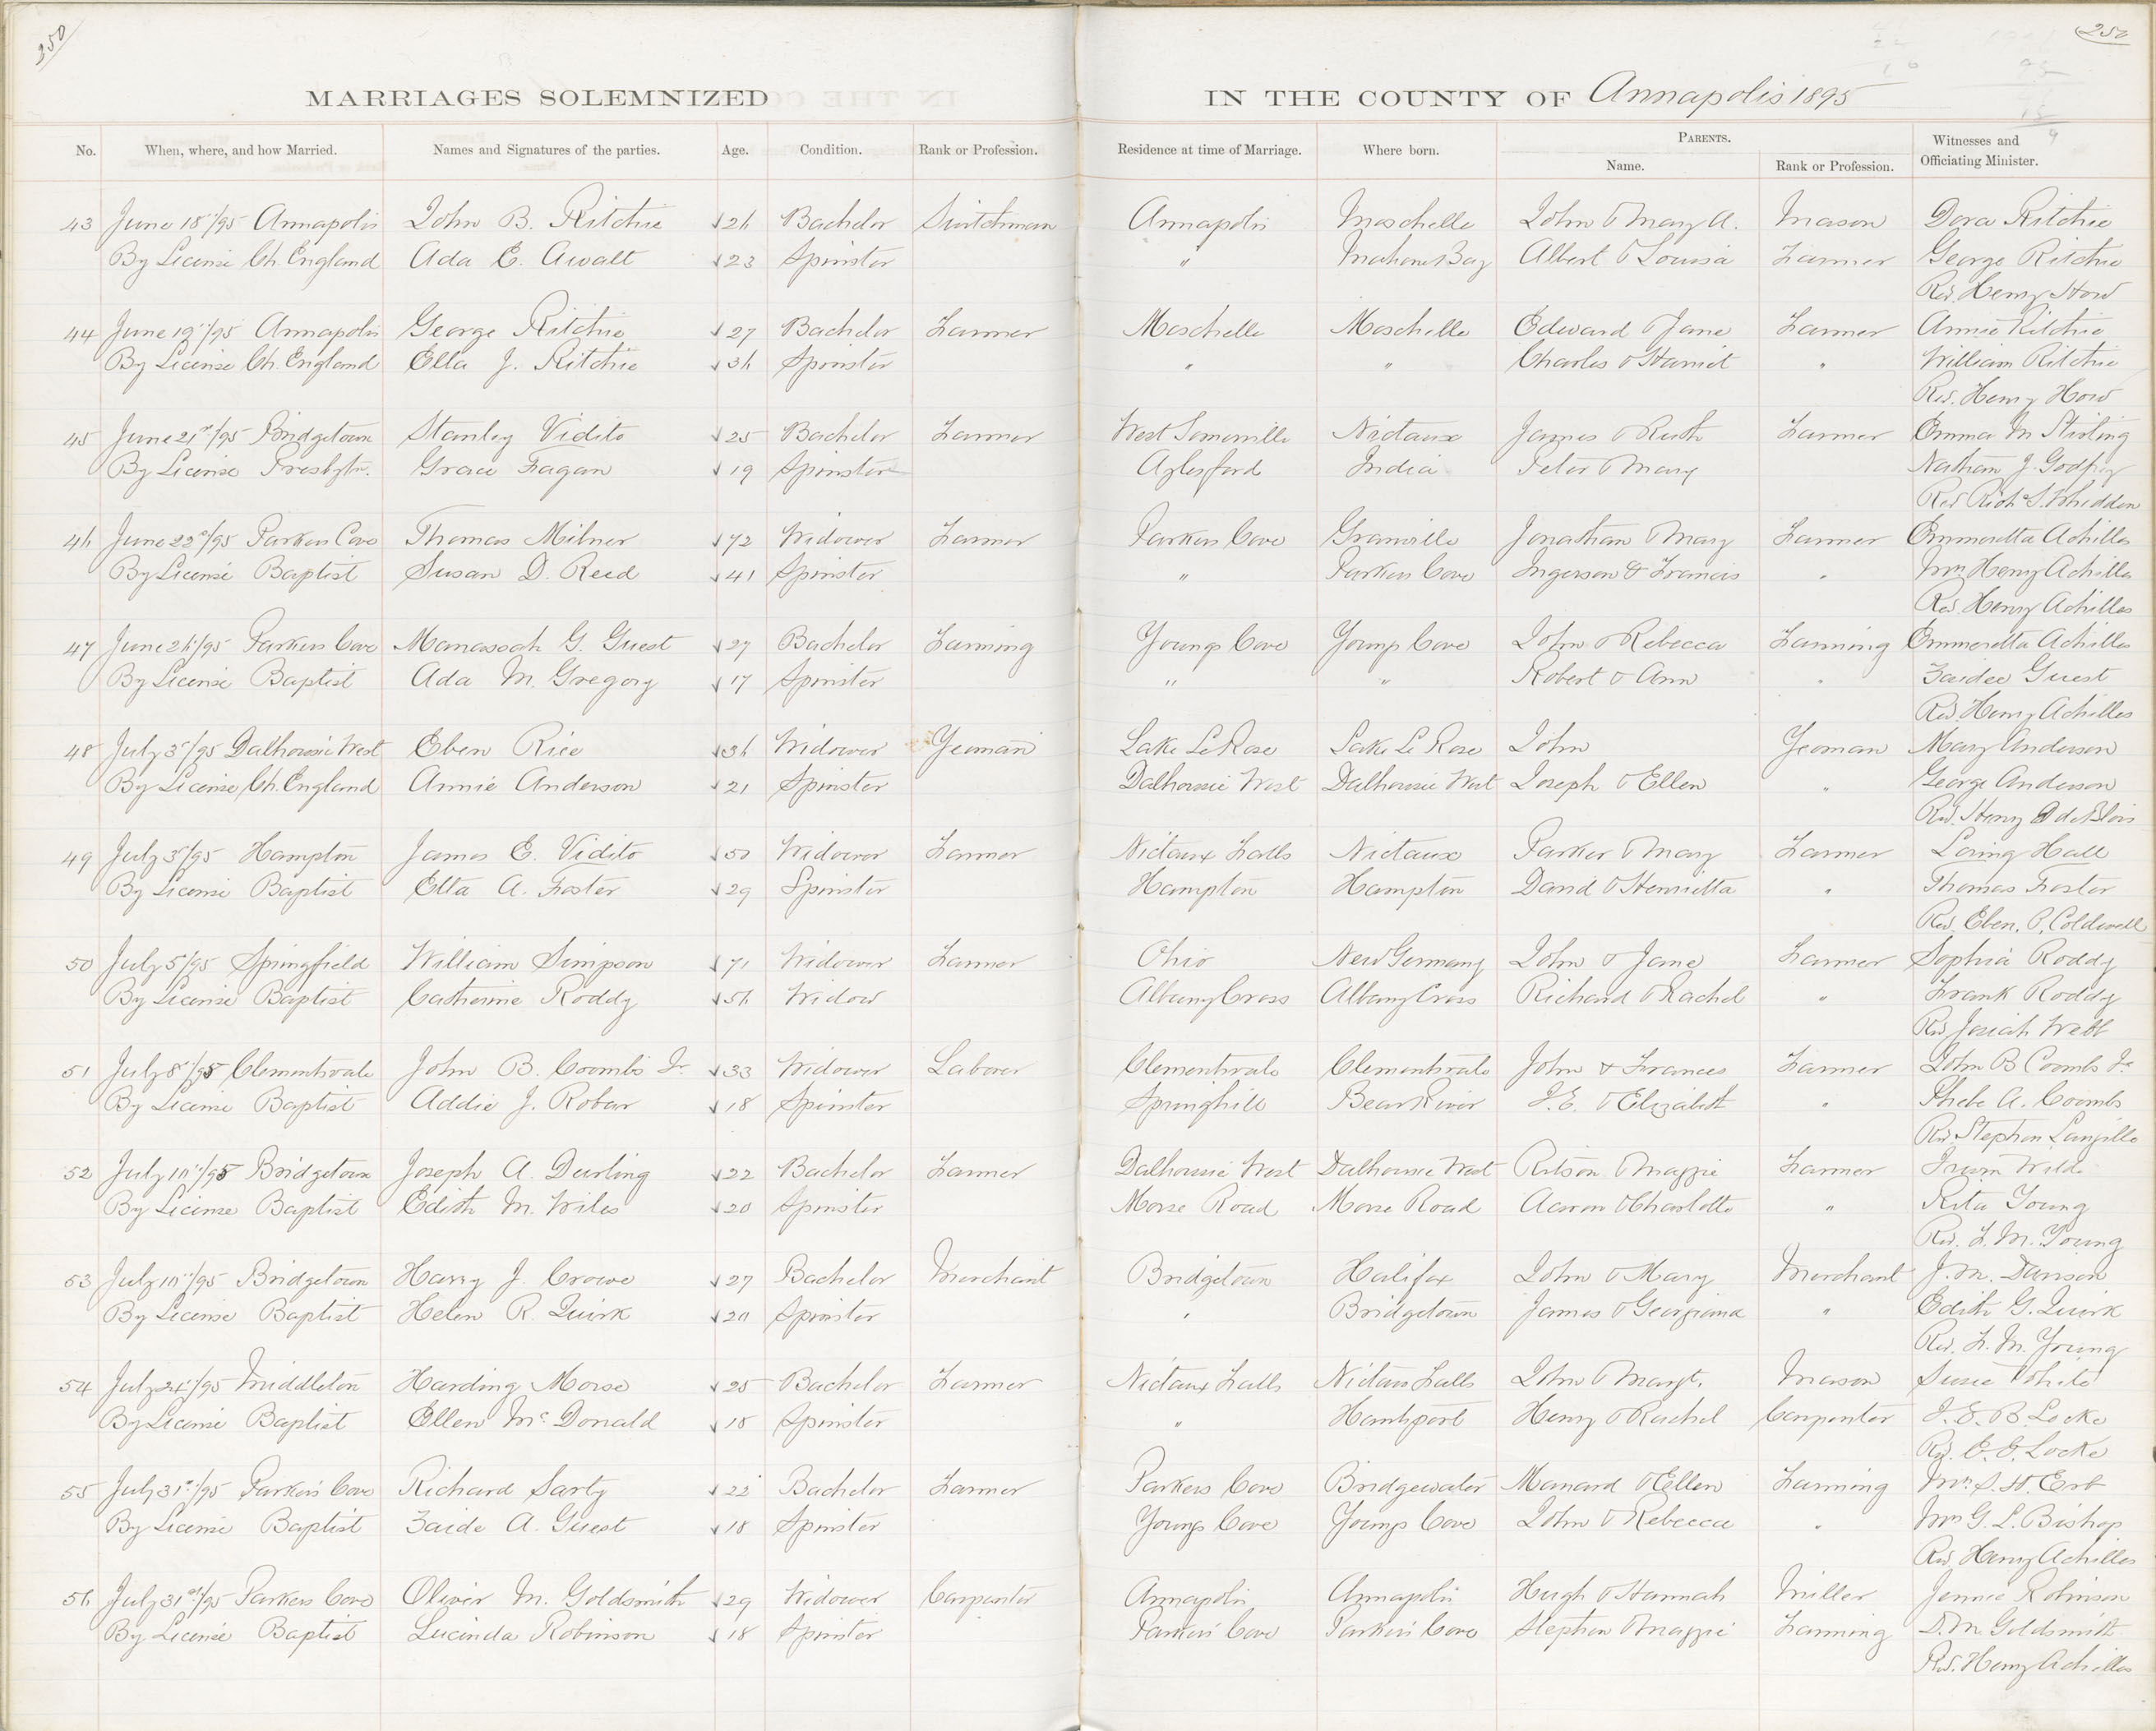 250
250
MARRIAGES SOLEMNIZED IN THE COUNTY OF Annapolis 1895
No. When, where, and how Married. Names and Signatures of the parties. Age. Condition. Rank or Profession. Residence at time of Marriage. Where born. PARENTS. Name. Rank or Profession. Witnesses and Officiating Minister.
43 June 18th/95 Annapolis John B. Ritchie 26 Bachelor Switchman Annapolis Moschelle John & Mary A. Mason Dora Ritchie
By License Ch. England Ada E. Awalt 23 Spinster " Mahone Bay Albert & Louisa Farmer George Ritchie
Rev. Henry How
44 June 19th/95 Annapolis George Ritchie 27 Bachelor Farmer Moschelle Moschelle Edward & Jane Farmer Annie Ritchie
By License Ch. England Ella J. Ritchie 36 Spinster " " Charles & Harriet " William Ritchie
Rev. Henry How
45 June 21st/95 Bridgetown Stanley Vidito 25 Bachelor Farmer West Somerville Nictaux James & Ruth Farmer Emma M Stirling
By License Presbytn. Grace Fagan 19 Spinster Aylesford India Peter & Mary Nathan J. Godfrey
Rev Richd S. Whidden
46 June 22nd/95 Parkers Cove Thomas Milner 72 Widower Farmer Parkers Cove Granville Jonathan & Mary Farmer Emmeretta Achilles
By License Baptist Susan D. Reed 41 Spinster " Parkers Cove Ingerson & Francis " Mrs Henry Achilles
Rev. Henry Achilles
47 June 26/95 Parkers Cove Manassah G. Guest 27 Bachelor Farming Youngs Cove Youngs Cove John & Rebecca Farming Emmeretta Achilles
By License Baptist Ada M. Gregory 17 Spinster " " Robert & Ann " Zaidee Guest
Rev. Henry Achilles
48 July 3/95 Dalhousie West Eben Rice 36 Widower Yeoman Lake Le Rose Lake Le Rose John Yeoman Mary Anderson
By License Ch. England Annie Anderson 21 Spinster Dalhousie West Dalhousie West Joseph & Ellen " George Anderson
Rev. Henry D de Blois
49 July 3/95 Hampton James E. Vidito 50 Widower Farmer Nictaux Falls Nictaux Parker & Mary Farmer Loring Hall
By License Baptist Etta A. Foster 29 Spinster Hampton Hampton David & Henrietta " Thomas Foster
Rev. Eben. P. Coldwell
50 July 5/95 Springfield William Simpson 71 Widower Farmer Ohio New Germany John & Jane Farmer Sophia Roddy
By License Baptist Catherine Roddy 56 Widow Albany Cross Albany Cross Richard & Rachel " Frank Roddy
Rev Josiah Webb
51 July 8th/95 Clementsvale John B. Coombs Jr. 33 Widower Laborer Clementsvale Clementsvale John & Frances Farmer John B Coombs Jr
By License Baptist Addie J. Robar 18 Spinster Springhill Bear River J.E. & Elizabeth " Phebe A. Coombs
Rev. Stephen Langille
52 July 10th/95 Bridgetown Joseph A. Durling 22 Bachelor Farmer Dalhousie West Dalhousie West Ritson & Maggie Farmer
By License Baptist Edith M. Wiles 20 Spinster Morse Road Morse Road Aaron & Charlotte " Rita Young
Rev. F. M. Young
53 July 10th/95 Bridgetown Harry J. Crowe 27 Bachelor Merchant Bridgetown Halifax John & Mary Merchant J. M. Davison
By License Baptist Helen R. Quirk 20 Spinster " Bridgetown James & Georgiana " Edith G. Quirk
Rev. F. M. Young
54 July 24th/95 Middleton Harding Morse 25 Bachelor Farmer Nictaux Falls Nictaux Falls John & Margt. Mason Susie White
By License Baptist Ellen Mc Donald 18 Spinster " Hantsport Henry & Rachel Carpenter J. E. B. Locke
Rev. E. E. Locke
55 July 31st/95 Parker's Cove Richard Sarty 22 Bachelor Farmer Parkers Cove Bridgewater Manard & Ellen Farming Mrs. S. H. Erb
By License Baptist Zaide A. Guest 18 Spinster Youngs Cove Youngs Cove John & Rebecca " Mrs G. L. Bishop
Rev. Henry Achilles
56 July 31st/95 Parkers Cove Oliver M. Goldsmith 29 Widower Carpenter Annapolis Annapolis Hugh & Hannah Miller Jennie Robinson
By License Baptist Lucinda Robinson 18 Spinster Parkers Cove Parkers Cove Stephen & Maggie Farming D. M Goldsmith
Rev. Henry Achilles